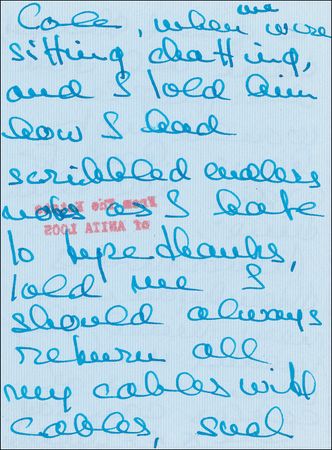 Cole, when we were
sitting chatting,
and I told him
how I had
scribbled endless
notes as I hate
From The Estate
of ANITA LOOS
to type thanks,
told me I
should always
return all
my cables with
cables, such